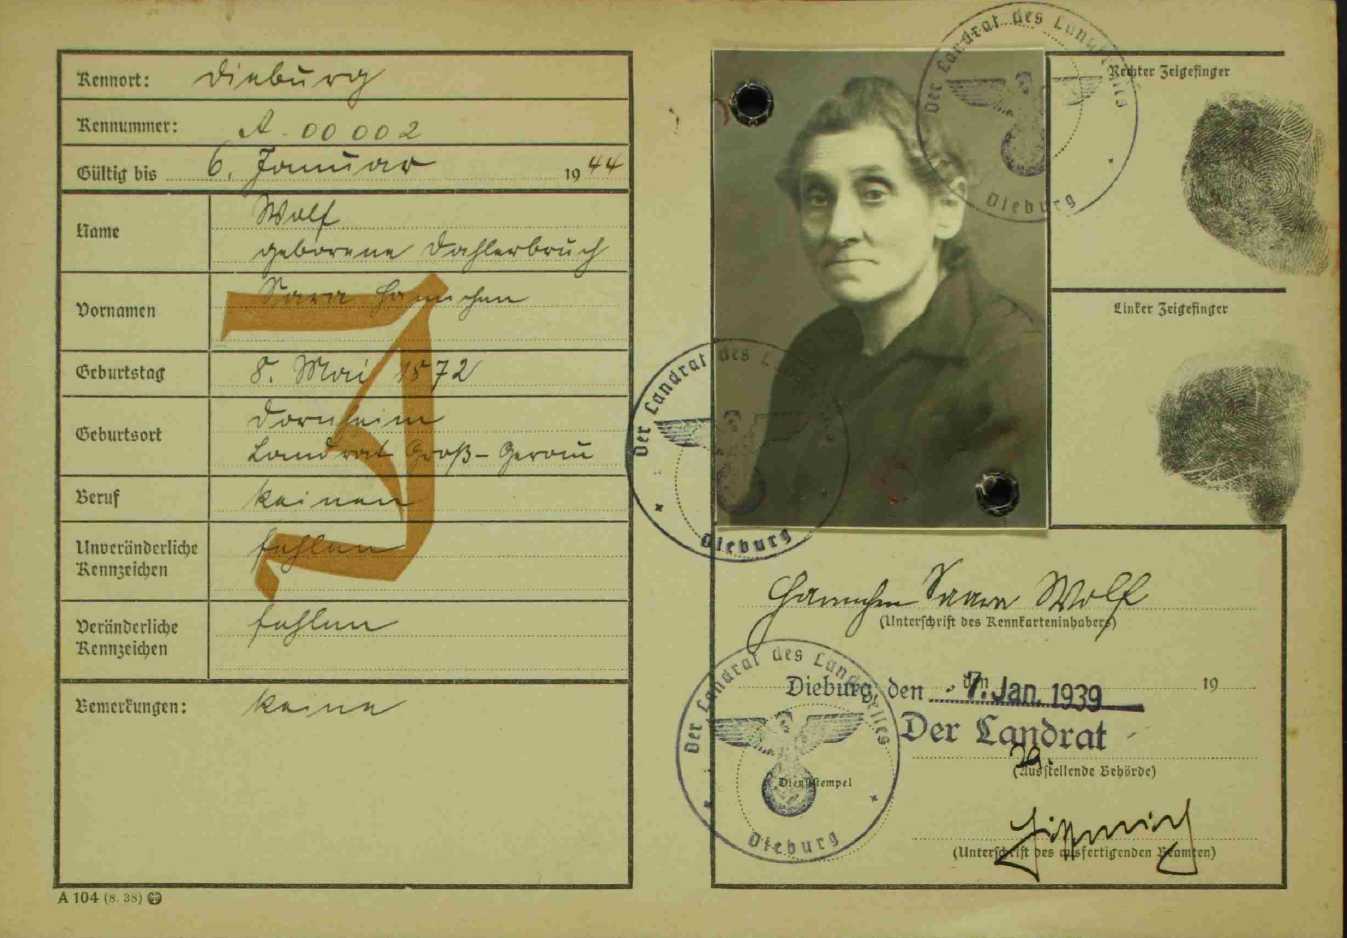 Kennort: Dieburg
Kennummer: A. 00 002
Gültig bis 6. Januar 1944
Name Wolf
geborene Dahlerbruch
Vornamen Sara Hannchen
Geburtstag 8. Mai 1872
Geburtsort Dornheim
Landrat Groß-Gerau
Beruf keinen
Unveränderliche
Kennzeichen fehlen
Veränderliche
Kennzeichen fehlen
Bemerkungen: keine
J
A 104 (8. 38)
Der Landrat des Landkreises
Dieburg
Rechter Zeigefinger
Linker Zeigefinger
Der Landrat des
Dieburg
Hannchen Sara Wolf
(Unterschrift des Kennkarteninhabers)
Dieburg, den 7. Jan. 1939 19
Der Landrat
(Ausstellende Behörde)
Der Landrat des Landkreises
Dieburg
Dienststempel
(Unterschrift des ausfertigenden Beamten)